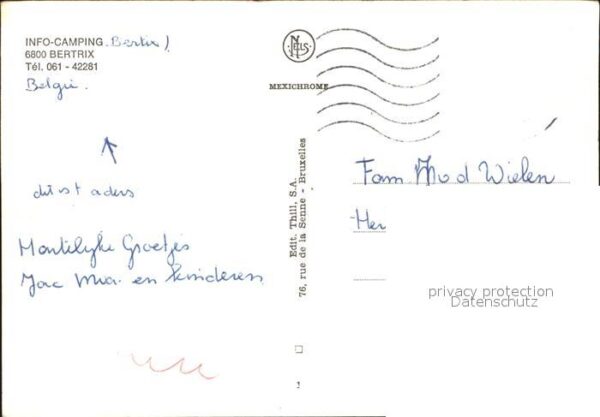 INFO-CAMPING Bertrix)
6800 BERTRIX
Tél. 061 - 42281
België.
dit is t adres
Hartelijke Groetjes
Jac Mia en kinderen
NELS
MEXICHROME
Edit. Thill, S.A.
76, rue de la Senne - Bruxelles
Fam
d Wielen
Her
privacy protection
Datenschutz